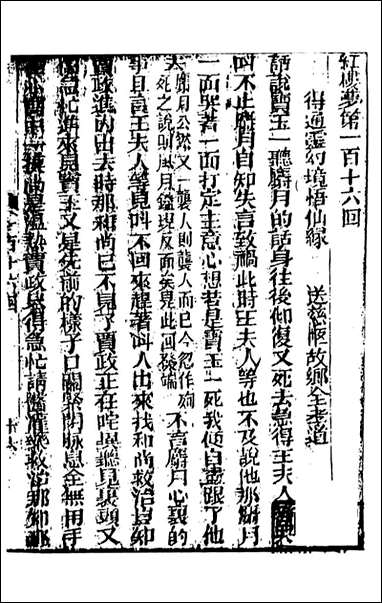 紅樓夢第一百十六回
得通靈幻境悟仙緣 送慈柩故鄉全孝道
話說寶玉一聽麝月的話身往後仰復又死去急得王夫人等哭
叫不止麝月自知失言致禍此時王夫人等也不及說他那麝月
一面哭著一面打定主意心想若是寶玉一死我便自盡跟了他
去麝月公然又一襲人則襲人而已今忽作殉
死之說明風月鑑現反面矣見此一回發端 不言麝月心裏的
事且言王夫人等見叫不回來趕著叫人出來找和尚救治豈知
賈政進內出去時那和尚已不見了賈政正在咤異聽見裏頭又
鬧急忙進來見寶玉又是先前的樣子口關緊閉脉息全無用手
在心窩中一摸尚是温熱賈政只得急忙請醫灌藥救治那知那